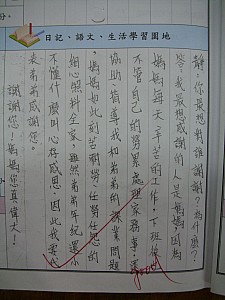 日記、語文、生活學習園地
靜,你最想對誰謝謝?為什麼?
答:我最想感謝的人是媽媽,因為
媽媽每天辛苦的工作,下班後
不管自己的勞累處理家務事,還
協助、指導我和弟弟的課業問題
媽媽如此刻苦耐勞、任勞任怨的
細心照料全家,雖然弟弟年紀還小
不懂什麼叫心存感恩,因此我要
表弟弟感謝您!
謝謝您!媽媽您真偉大!
good